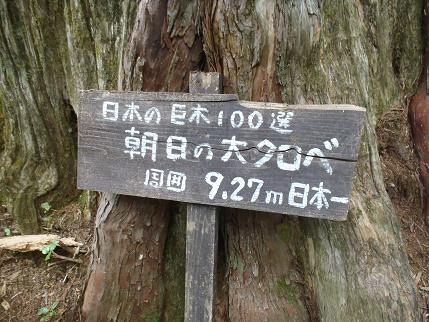 日本の巨木100選
朝日の大クロベ
周囲 9.27m日本一